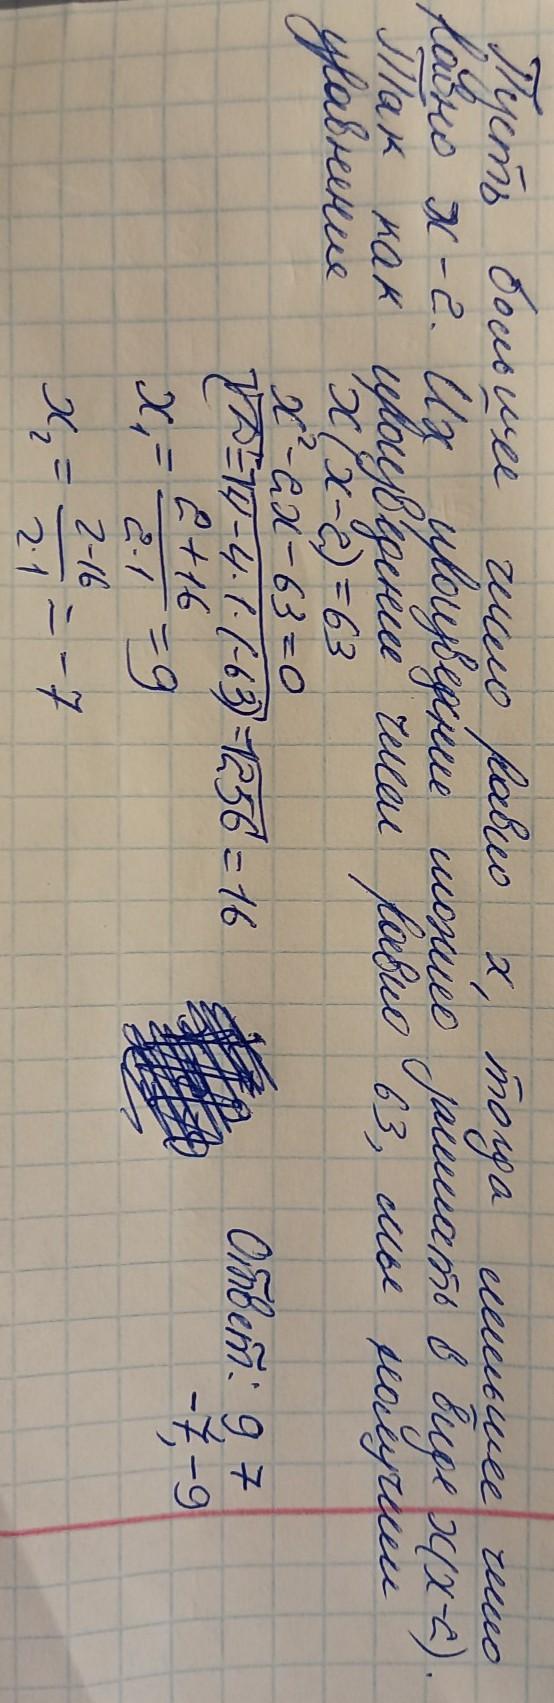 Пусть большее число равно x, тогда меньшее число
равно x-2. Их произведение можно записать в виде x(x-2).
Так как произведение чисел равно 63, мы получим
уравнения
x(x-2)=63
x²-2x-63=0
√D=√4-4·1·(-63)=√256=16
x₁=(2+16)/(2·1)=9
x₂=(2-16)/(2·1)=-7
Ответ: 9, 7
-7, -9